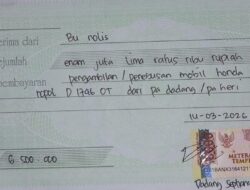 erima dari Bu nolis
jumlah enam juta lima ratus ribu rupiah
embayaran pengambilan / penebusan mobil honda
nopol D 1746 OT dari pa dadang / pa heri
14-03-2026
6.500.000
METERAI
TEMPEL
Dadang Septiana